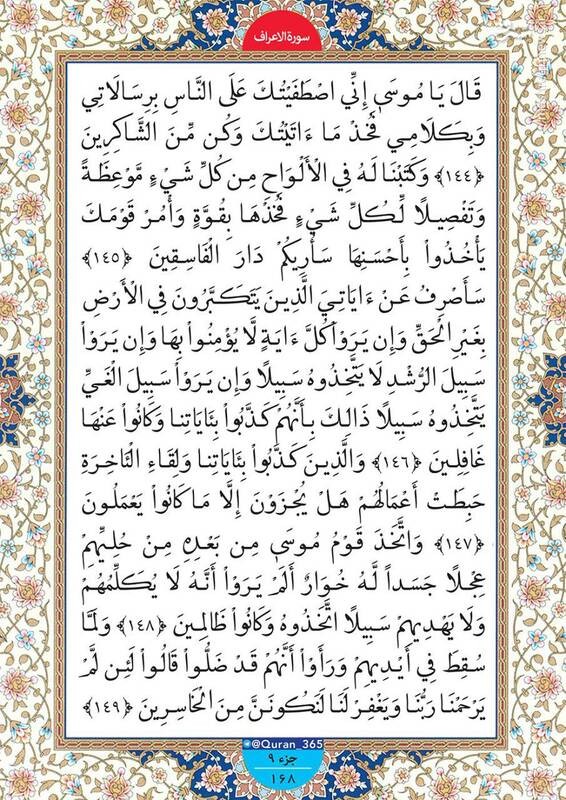 سورة الاعراف
قَالَ يَا مُوسَىٰ إِنِّي اصْطَفَيْتُكَ عَلَى النَّاسِ بِرِسَالَاتِي
وَبِكَلَامِي فَخُذْ مَا ءَاتَيْتُكَ وَكُن مِّنَ الشَّاكِرِينَ
﴿١٤٤﴾ وَكَتَبْنَا لَهُ فِي الْأَلْوَاحِ مِن كُلِّ شَيْءٍ مَّوْعِظَةً
وَتَفْصِيلًا لِّكُلِّ شَيْءٍ فَخُذْهَا بِقُوَّةٍ وَأْمُرْ قَوْمَكَ
يَأْخُذُواْ بِأَحْسَنِهَا سَأُرِيكُمْ دَارَ الْفَاسِقِينَ ﴿١٤٥﴾
سَأَصْرِفُ عَنْ ءَايَاتِيَ الَّذِينَ يَتَكَبَّرُونَ فِي الْأَرْضِ
بِغَيْرِ الْحَقِّ وَإِن يَرَوْاْ كُلَّ ءَايَةٍ لَّا يُؤْمِنُواْ بِهَا وَإِن يَرَوْاْ
سَبِيلَ الرُّشْدِ لَا يَتَّخِذُوهُ سَبِيلًا وَإِن يَرَوْاْ سَبِيلَ الْغَيِّ
يَتَّخِذُوهُ سَبِيلًا ذَالِكَ بِأَنَّهُمْ كَذَّبُواْ بِـَٔايَاتِنَا وَكَانُواْ عَنْهَا
غَافِلِينَ ﴿١٤٦﴾ وَالَّذِينَ كَذَّبُواْ بِـَٔايَاتِنَا وَلِقَاءِ الْـَٔاخِرَةِ
حَبِطَتْ أَعْمَالُهُمْ هَلْ يُجْزَوْنَ إِلَّا مَا كَانُواْ يَعْمَلُونَ
﴿١٤٧﴾ وَاتَّخَذَ قَوْمُ مُوسَىٰ مِن بَعْدِهِ مِنْ حُلِيِّهِمْ
عِجْلًا جَسَداً لَّهُ خُوَارٌ أَلَمْ يَرَوْاْ أَنَّهُ لَا يُكَلِّمُهُمْ
وَلَا يَهْدِيهِمْ سَبِيلًا اتَّخَذُوهُ وَكَانُواْ ظَالِمِينَ ﴿١٤٨﴾ وَلَمَّا
سُقِطَ فِي أَيْدِيهِمْ وَرَأَوْاْ أَنَّهُمْ قَدْ ضَلُّواْ قَالُواْ لَئِن لَّمْ
يَرْحَمْنَا رَبُّنَا وَيَغْفِرْ لَنَا لَنَكُونَنَّ مِنَ الْخَاسِرِينَ ﴿١٤٩﴾
@Quran_365
جزء ۹
۱۶۸